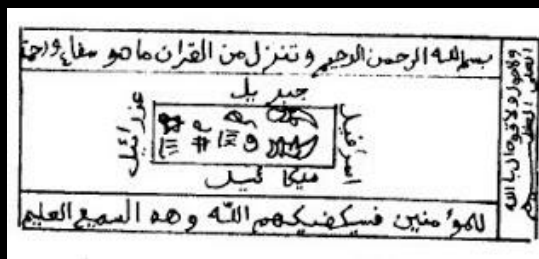 بسم الله الرحمن الرحيم وتنزل من القران ما هو شفاء ورحمة
جبريل
عزرائيل
اسرافيل
ميكائيل
للمؤمنين فسيكفيكهم الله وهو السميع العليم
ولا حول ولا قوة الا بالله
العلي العظيم